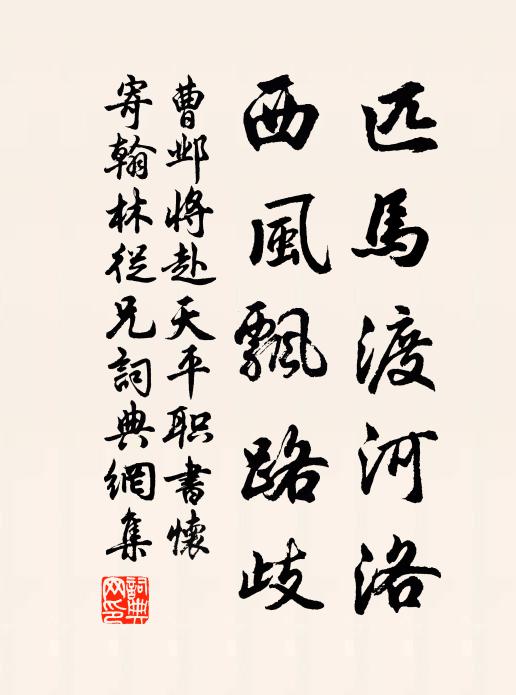 匹馬渡河洛
西風飄路歧
曹邺將赴天平职書懷
寄翰林從兄詞典網集
詞典网印